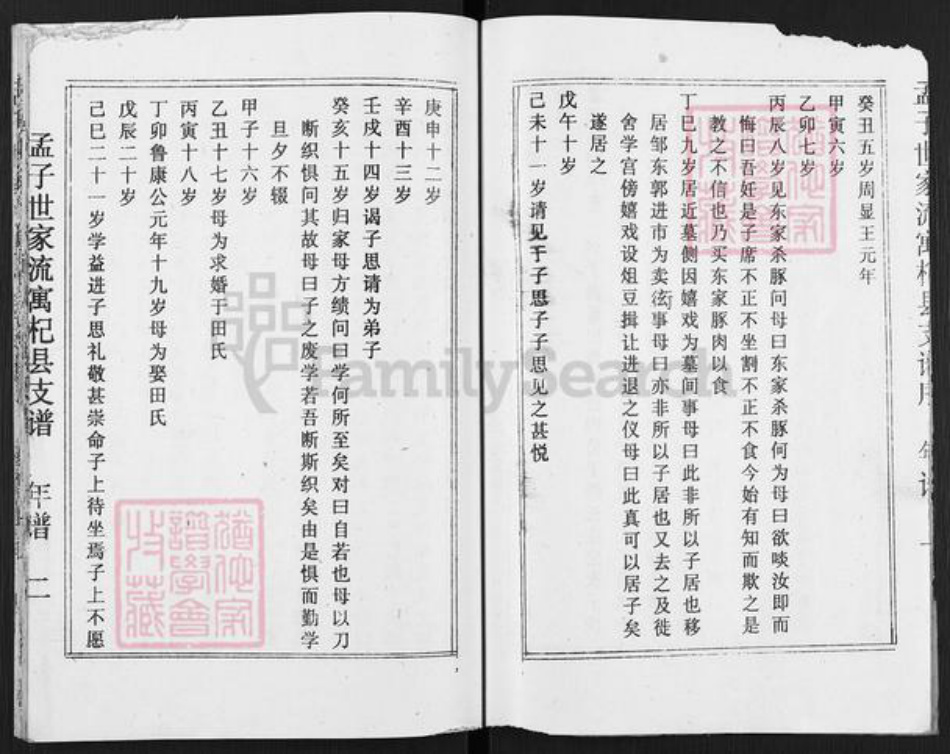 孟子世家流寓杞县支谱
年谱
癸丑五岁周显王元年
甲寅六岁
乙卯七岁
丙辰八岁见东家杀豚问母曰东家杀豚何为母曰欲啖汝即而
悔曰吾妊是子席不正不坐割不正不食今始有知而欺之是
教之不信也乃买东家豚肉以食
丁巳九岁居近墓侧因嬉戏为墓间事母曰此非所以子居也移
居邹东郭进市为卖衒事母曰亦非所以子居也又去之及徙
舍学宫傍嬉戏设俎豆揖让进退之仪母曰此真可以居子矣
遂居之
戊午十岁
己未十一岁请见于子思子子思见之甚悦
庚申十二岁
辛酉十三岁
壬戌十四岁谒子思请为弟子
癸亥十五岁归家母方绩问曰学何所至矣对曰自若也母以刀
断织惧问其故母曰子之废学若吾断斯织矣由是惧而勤学
旦夕不辍
甲子十六岁
乙丑十七岁母为求婚于田氏
丙寅十八岁
丁卯鲁康公元年十九岁母为娶田氏
戊辰二十岁
己巳二十一岁学益进子思礼敬甚崇命子上待坐焉子上不愿
孟子世家流寓杞县支谱
年谱
二
FamilySearch